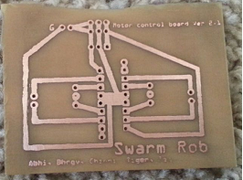 G
Motor control board ver 2.1
Swarm Rob
Abhi, Dhrav,